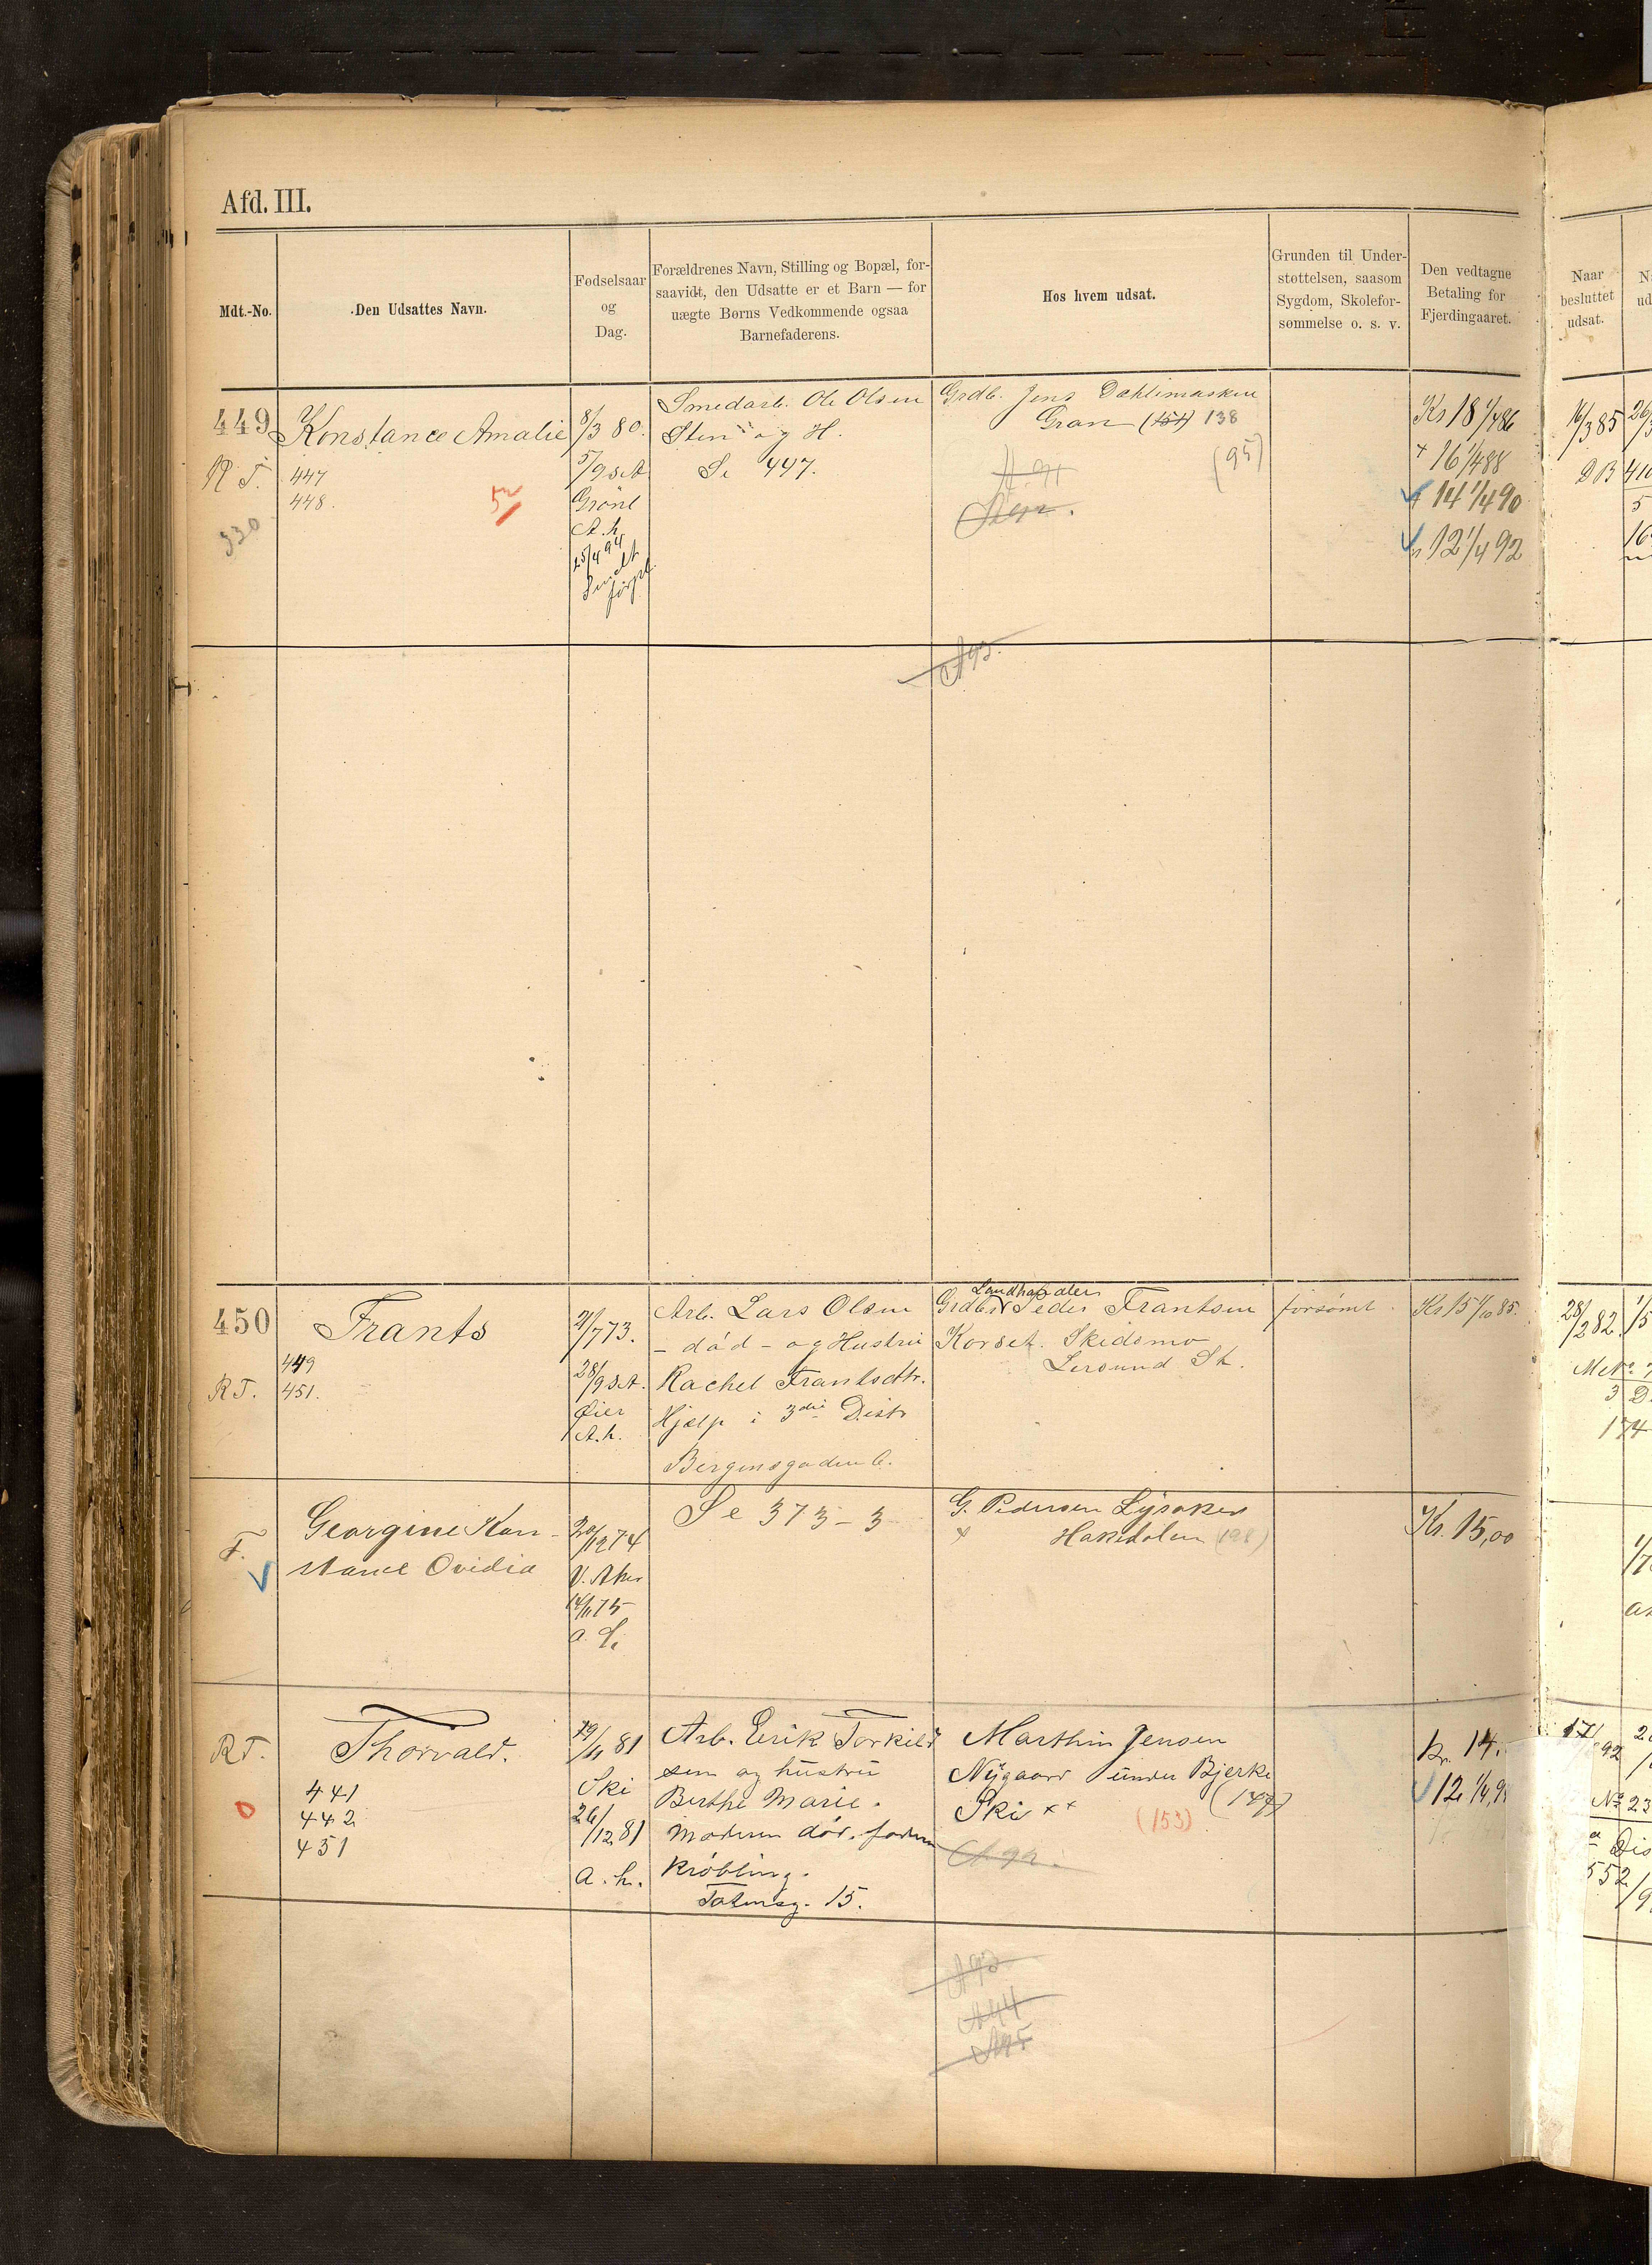 Afd. III.
Mdt.-No.
Den Udsattes Navn.
Fødselsaar
og
Dag.
Forældrenes Navn, Stilling og Bopæl, for-
saavidt, den Udsatte er et Barn — for
uægte Børns Vedkommende ogsaa
Barnefaderens.
Hos hvem udsat.
Grunden til Under-
støttelsen, saasom
Sygdom, Skolefor-
sømmelse o. s. v.
Den vedtagne
Betaling for
Fjerdingaaret.
Naar
besluttet
udsat.
449
R T.
330
Konstance Amalie
447
448.
8/3 80.
5/9 s A
Grønl
A. h.
25/4 94
Smedarb. Ole Olsen
Sten og H.
Se 447.
Grdb. Jens
Gran (151) 138
(95)
A. 91
Kr 18 1/4 86
+ 16 1/4 88
14 1/4 90
12 1/4 92
16/3 85
A93.
450
RT.
Frants
449
451.
21/7 73.
28/9 s A.
Øier
A. h.
Arb. Lars Olsen
- død - og Hustru
Rachel Frantsdtr.
Hjælp i 3die Distr
Bergensgaden 6.
Landhandler
Grdbr Peder Frantsen
Korset. Skidsmo
Lersund St.
forsømt.
Kr 15 1/10 85.
28/2 82.
174
F.
Georgine Kon-
stance Ovidia
20/12 74
V. Aker
14/11 75
Se 373-3
G. Pedersen Lysaker
Hakedalen (198)
Kr. 15,00
RT.
Thorvald.
441
442
451
29/11 81
Ski
26/12 81
a. h.
Arb. Erik Torkild
sen og hustru
Berthe Marie.
Moderen død. faderen
krøbling.
15.
Marthin Jensen
Nygaard under Bjerke
Ski ××
(147)
(153)
A 92.
Kr. 14.
A93
A44
A95